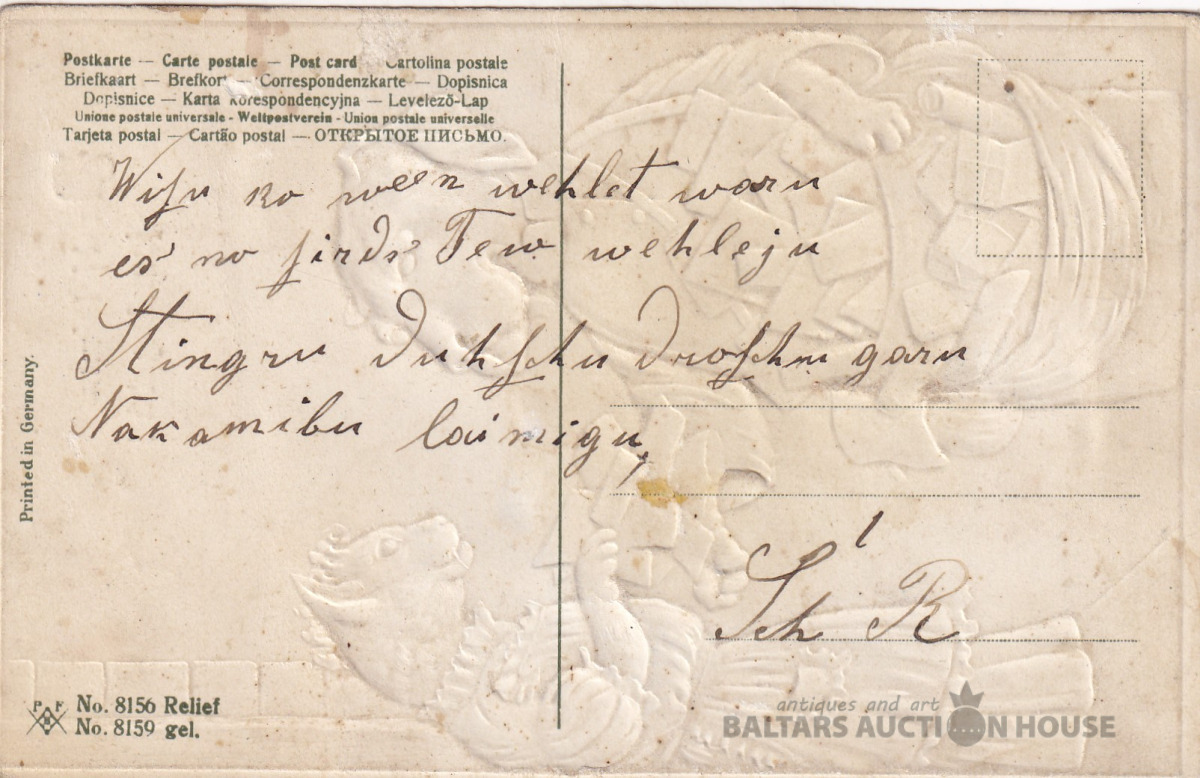 Postkarte — Carte postale — Post card — Cartolina postale
Briefkaart — Brefkort — Correspondenzkarte — Dopisnica
Dopisnice — Karta korespondencyjna — Levelező-Lap
Unione postale universale - Weltpostverein - Union postale universelle
Tarjeta postal — Cartão postal — ОТКРЫТОЕ ПИСЬМО.
Wisu ko ween wehlet waru
es no sirds Tew wehleju
Stingru duhschu droschu garu
Nakamibu laimigu,
Sch R
Printed in Germany.
P F
B
No. 8156 Relief
No. 8159 gel.
antiques and art
BALTARS AUCTION HOUSE